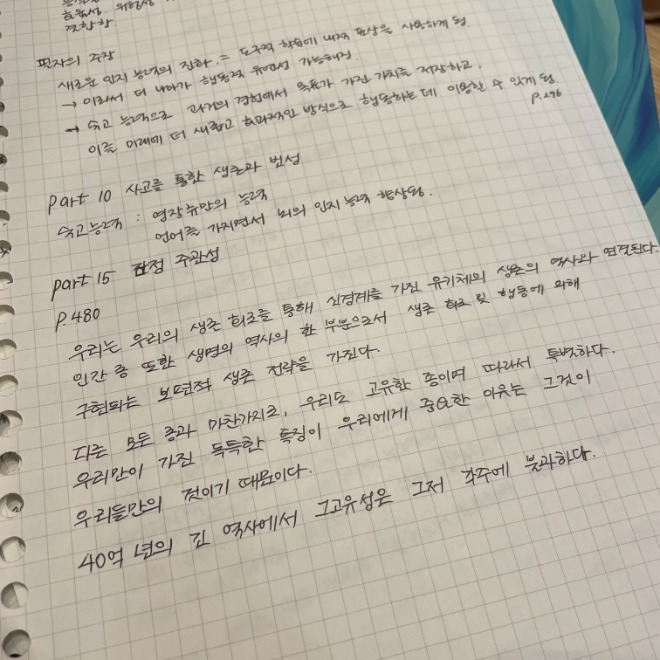 효율성. 위험성
경향성
필자의 주장
새로운 인지 능력의 진화. = 도구적 학습에 내적 표상을 사용하게 됨.
→ 이로써 더 나아가 행동적 유연성 가능해짐
→ 숙고 능력으로 과거의 경험에서 목표가 가진 가치를 저장하고,
이를 미래에 더 새롭고 효과적인 방식으로 행동하는데 이용할 수 있게 됨.
p.296
part 10 사고를 통한 생존과 번성
숙고능력 : 영장류만의 능력
언어를 가지면서 뇌의 인지능력 향상됨.
part 15 감정 주관성
p.480
우리는 우리의 생존 회로를 통해 신경계를 가진 유기체의 생존의 역사와 연결된다.
인간 종 또한 생명의 역사의 한 부분으로서 생존 회로 및 행동에 의해
구현되는 보편적 생존 전략을 가진다.
다른 모든 종과 마찬가지로, 우리도 고유한 종이며 따라서 특별하다.
우리만이 가진 독특한 특징이 우리에게 중요한 이유는 그것이
우리들만의 것이기 때문이다.
40억 년의 긴 역사에서 그고유성은 그저 각주에 불과하다.